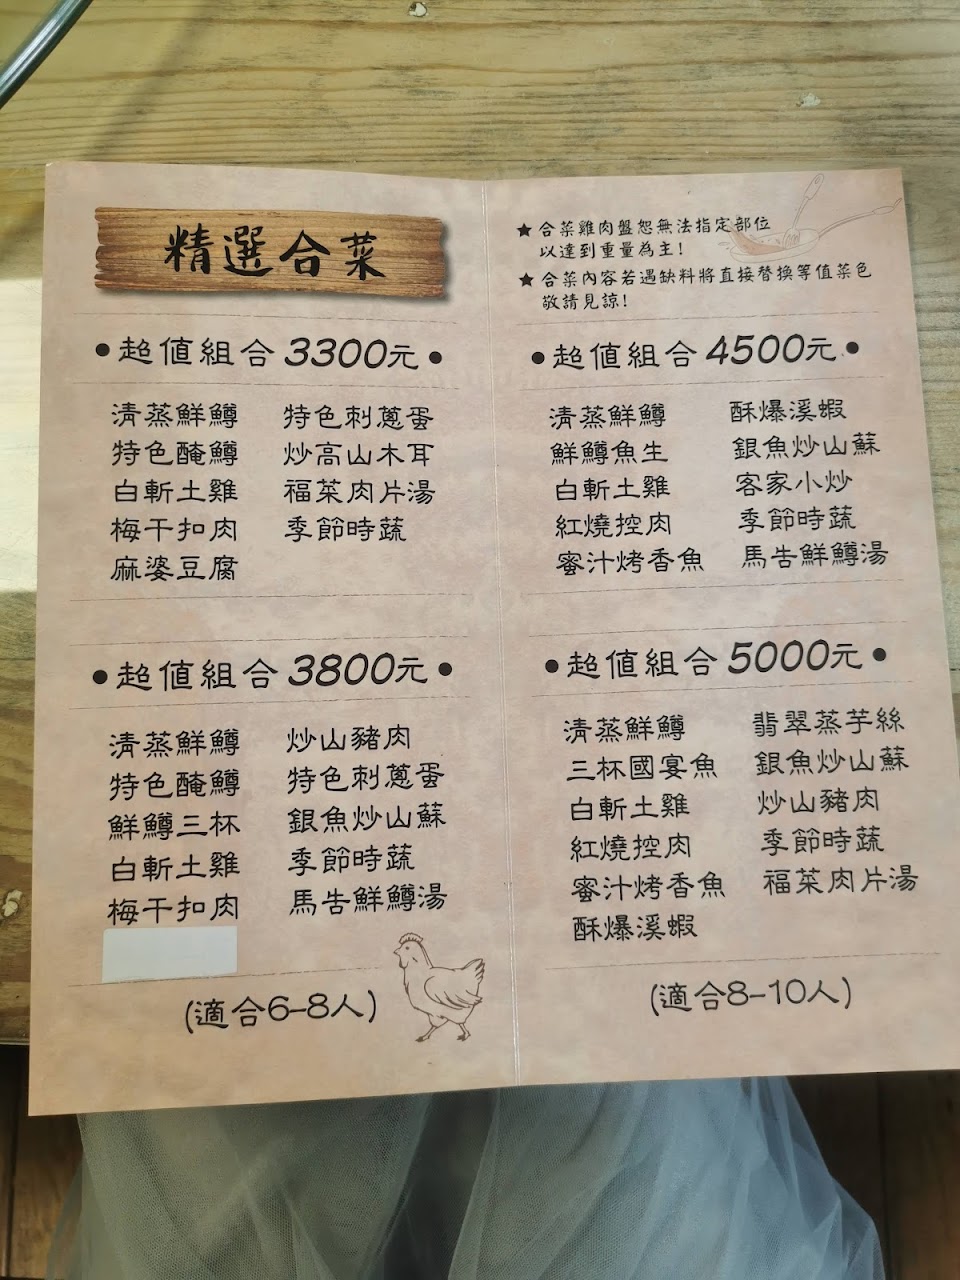 精選合菜
超值組合3300元
清蒸鮮鱒
特色醃鱒
白斬土雞
梅干扣肉
麻婆豆腐
特色刺蔥蛋
炒高山木耳
福菜肉片湯
季節時蔬
超值組合3800元
清蒸鮮鱒
特色醃鱒
鮮鱒三杯
白斬土雞
梅干扣肉
炒山豬肉
特色刺蔥蛋
銀魚炒山蘇
季節時蔬
馬告鮮鱒湯
(適合6-8人)
★ 合菜雞肉盤恕無法指定部位
以達到重量為主!
★ 合菜內容若遇缺料將直接替換等值菜色
敬請見諒!
超值組合4500元
清蒸鮮鱒
鮮鱒魚生
白斬土雞
紅燒控肉
蜜汁烤香魚
酥爆溪蝦
銀魚炒山蘇
客家小炒
季節時蔬
馬告鮮鱒湯
超值組合5000元
清蒸鮮鱒
三杯國宴魚
白斬土雞
紅燒控肉
蜜汁烤香魚
酥爆溪蝦
翡翠蒸芋絲
銀魚炒山蘇
炒山豬肉
季節時蔬
福菜肉片湯
(適合8-10人)